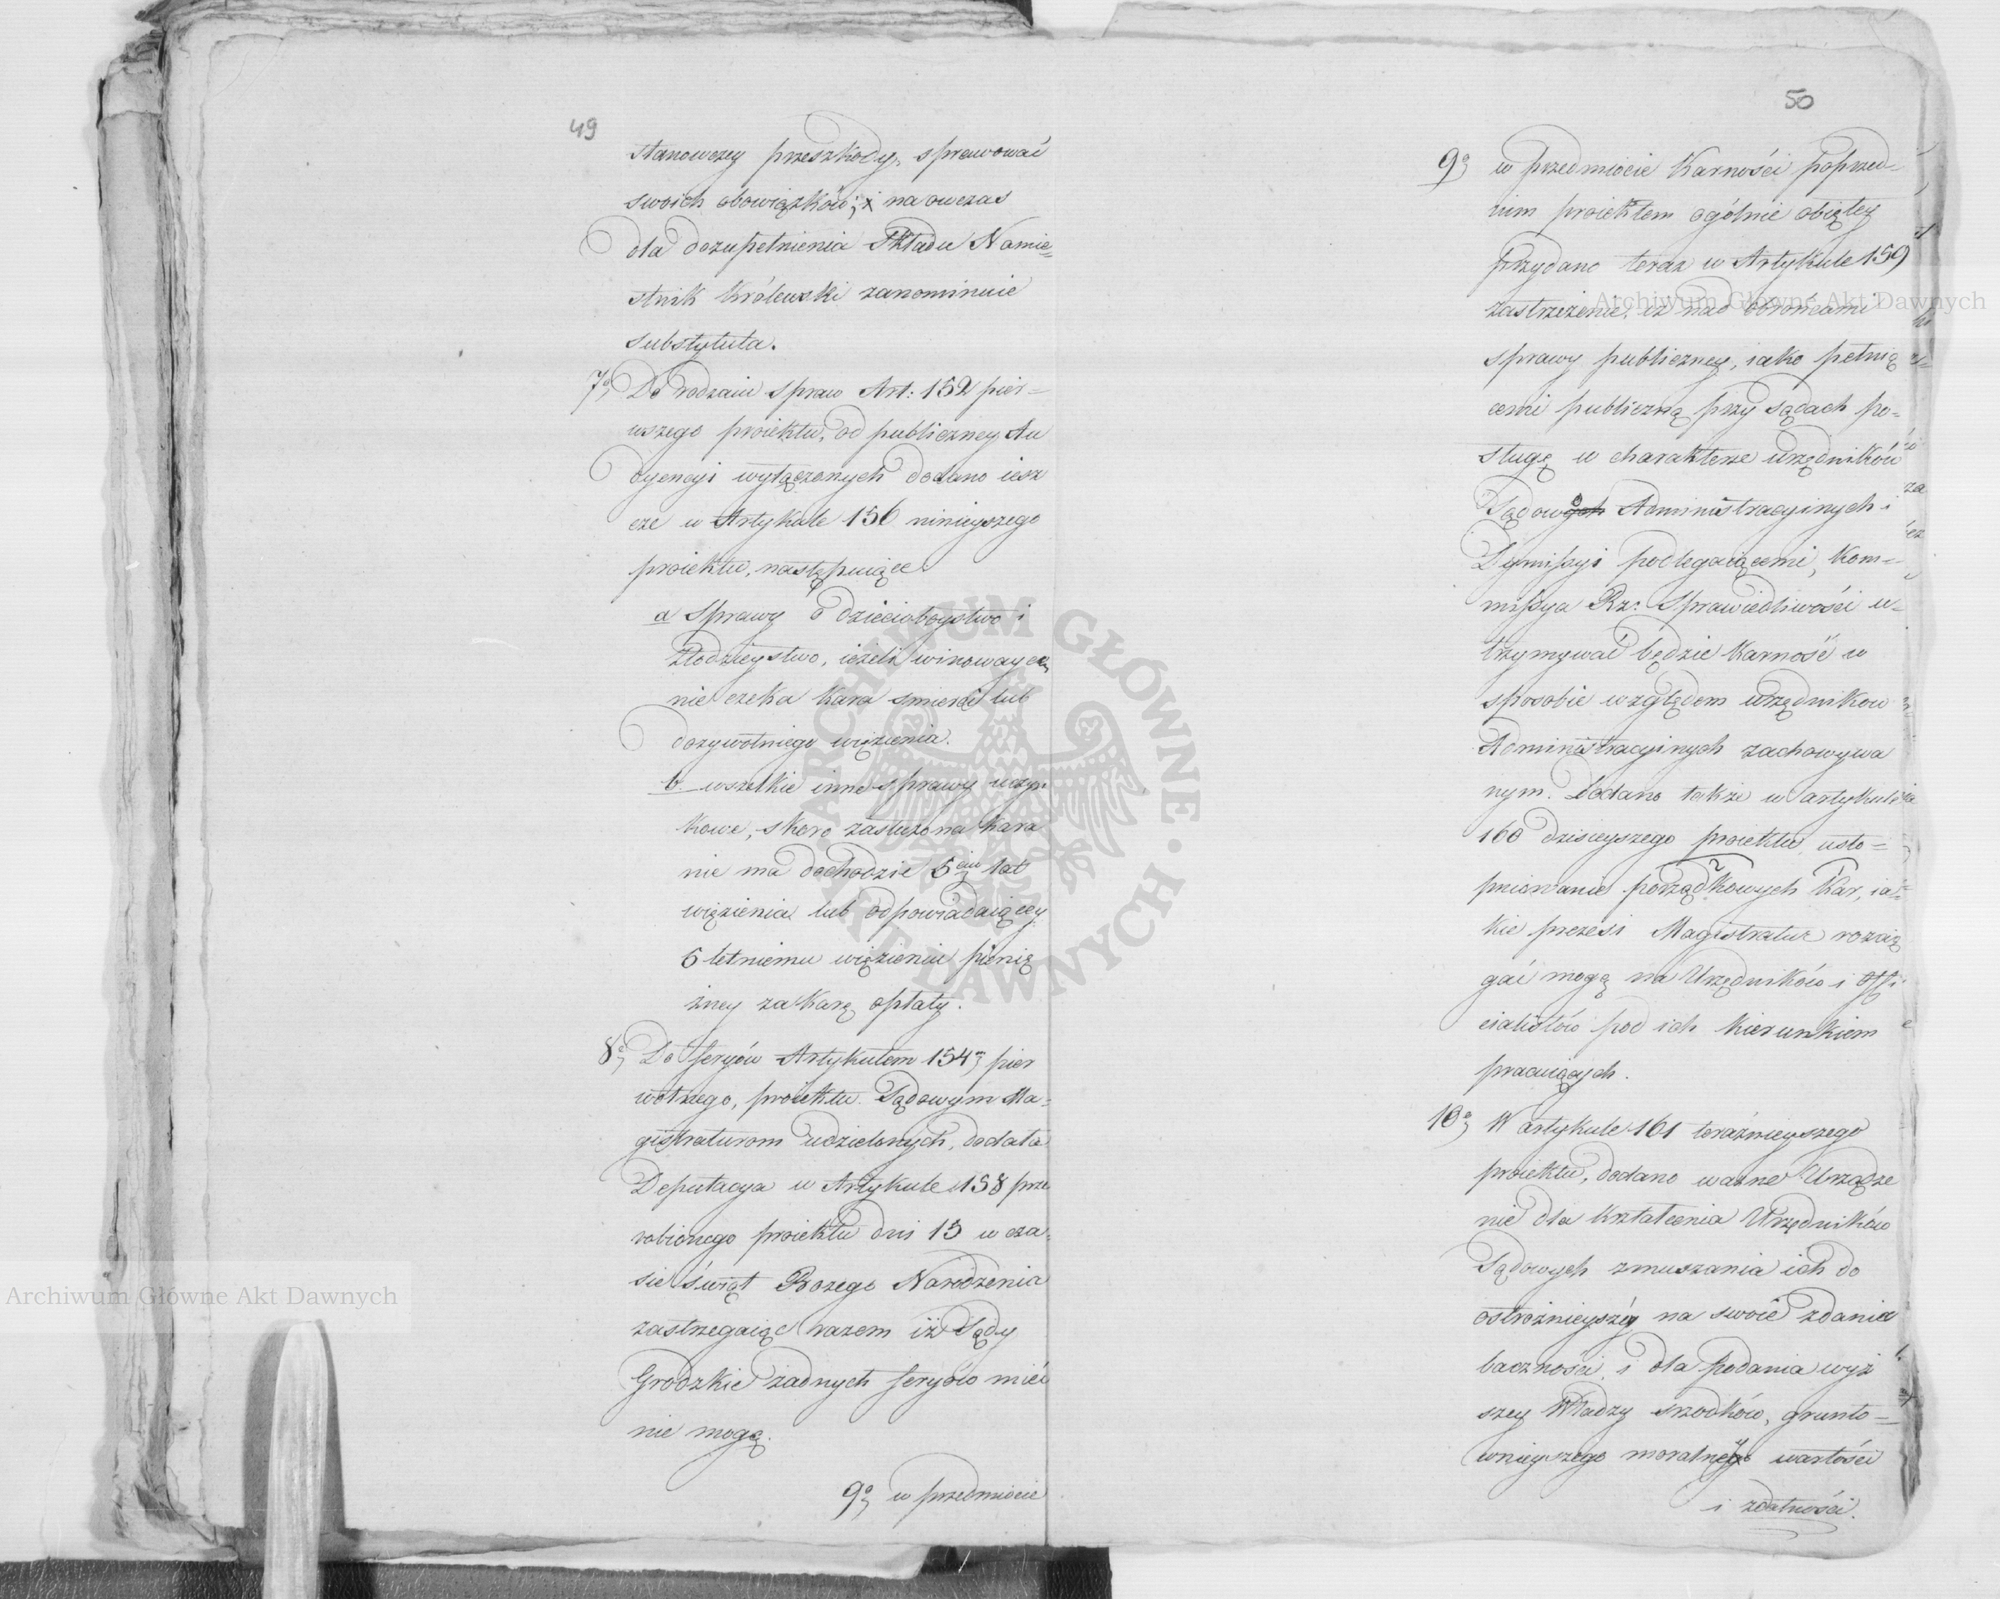 49
stanowczey przeszkody, sprawować
swoich obowiązków; i na owczas
dla dozupełnienia Składu Namie=
stnik Królewski zanominuie
substytuta.
7o, Do rodzaiu spraw Art: 152 pier=
wszego proiektu, od publiczney Au
dyencyi wyłączonych dodano iesz
cze w Artykule 156 ninieyszego
proiektu, następuiące
a Sprawy o dzieciobóystwo i
złodzieystwo, ieżeli winowaycę
nie czeka kara smierci lub
dożywotniego więzienia.
b wszelkie inne sprawy uczyn
kowe, skoro zasłużona kara
nie ma dochodzić 5ciu lat
więzienia lub odpowiadaiącey
5 letniemu więzieniu pienię
żney za karę opłaty.
8o, Do feryów Artykułem 154m pier
wotnego, proiektu Sądowym Ma=
gistraturom udzielonych, dodała
Deputacya w Artykule 158 prze
robionego proiektu dni 15 w cza=
sie świąt Bożego Narodzenia
zastrzegaiąc razem iż Sądy
Grodzkie żadnych feryów mieć
nie mogą.
9o, w przedmiocie
50
9o, w przedmiocie Karności poprzed=
nim proiektem ogólnie obiętey
przydano teraz w Artykule 159
zastrzeżenie, iż nad obrońcami
sprawy publiczney, iako pełnią
cemi publiczną przy sądach po=
sługę w charakterze urzędników
Sądowo Administracyinych i
Dymissyi podlegaiącemi, Kom=
missya Rz: Sprawiedliwości u=
trzymywać będzie karność w
sposobie względem urzędnikow
Administracyinych zachowywa
nym. Dodano także w artykule
160 dzisieyszego proiektu usto=
pniowanie porządkowych Kar, ia=
kie prezesi Magistratur rozcią
gać mogą na Urzędników i Offi
cialistów pod ich kierunkiem
pracuiących.
10o, W artykule 161 teraźnieyszego
proiektu, dodano ważne Urządze
nie dla kształcenia Urzędników
Sądowych zmuszania ich do
ostrożnieyszéy na swoie zdania
baczności, i dla podania wyż
szey Władzy srzodków, grunto=
wnieyszego moralney wartości
i zdatności.
Archiwum Główne Akt Dawnych
Archiwum Główne Akt Dawnych
ARCHIWUM GŁÓWNE · AKT DAWNYCH ·